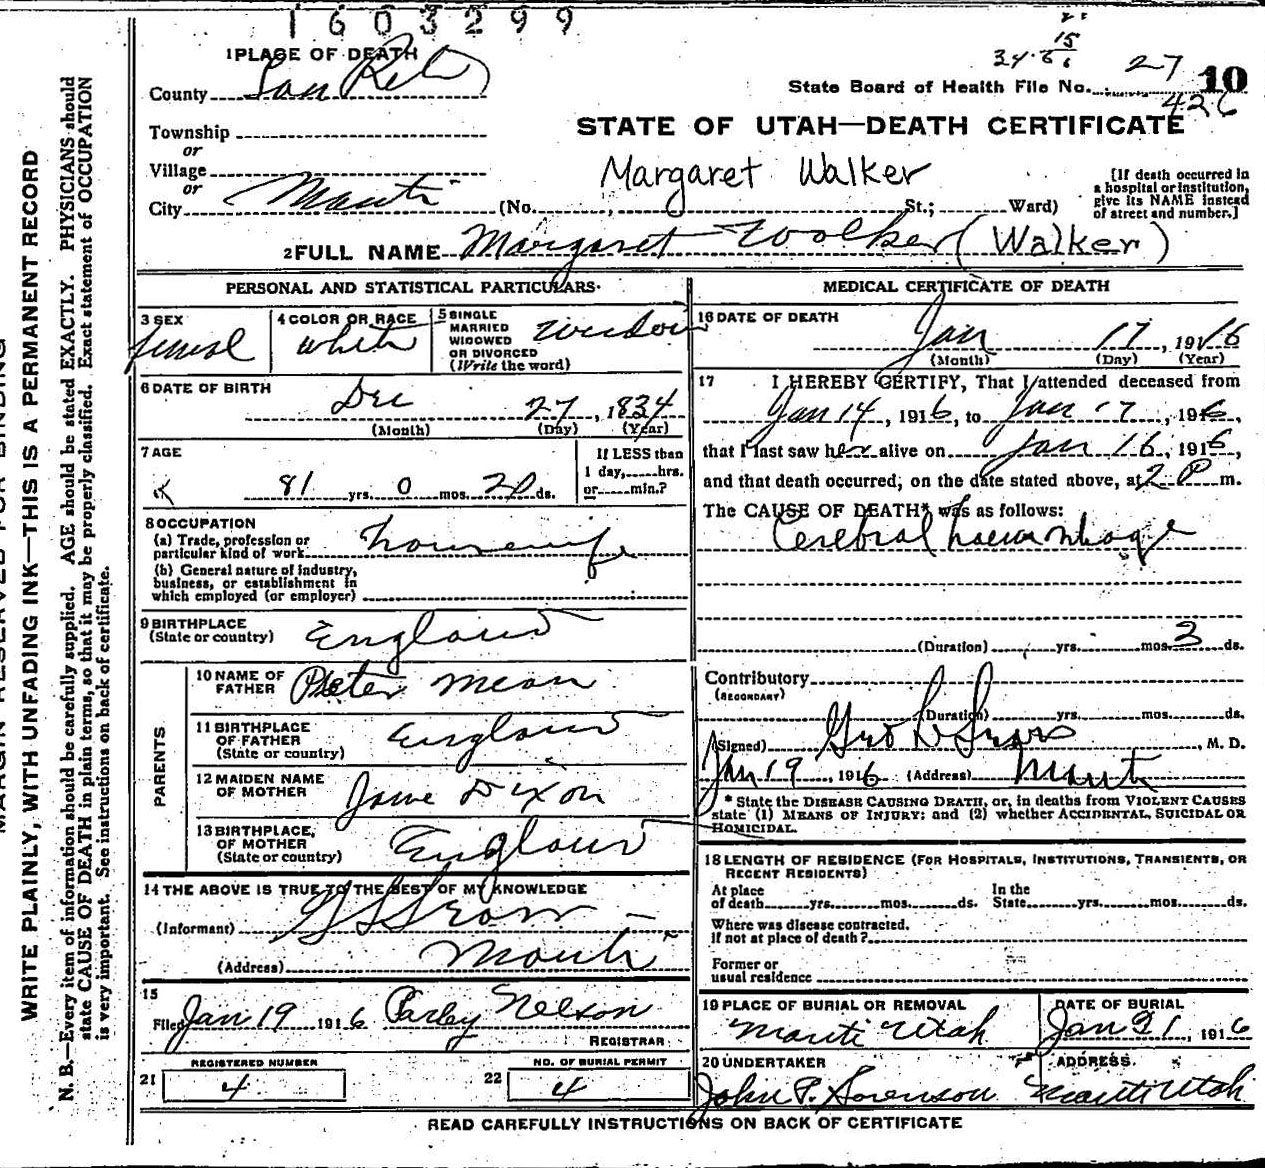 1603299
1 PLACE OF DEATH
15
34.6
6
27
State Board of Health File No. 10
426
County San Pete
STATE OF UTAH—DEATH CERTIFICATE
Township
or
Village
or
City Manti (No. , St.; Ward)
Margaret Walker
[If death occurred in
a hospital or institution,
give its NAME instead
of street and number.]
2 FULL NAME Margaret Walker (Walker)
PERSONAL AND STATISTICAL PARTICULARS.
3 SEX
female
4 COLOR OR RACE
white
5 SINGLE
MARRIED
WIDOWED
OR DIVORCED
(Write the word)
widow
6 DATE OF BIRTH
Dec 27, 1834
(Month) (Day) (Year)
7 AGE
81 yrs. 0 mos. 20 ds.
If LESS than
1 day, hrs.
or min.?
8 OCCUPATION
(a) Trade, profession or
particular kind of work housewife
(b) General nature of industry,
business, or establishment in
which employed (or employer)
9 BIRTHPLACE
(State or country) England
PARENTS
10 NAME OF
FATHER Peter
11 BIRTHPLACE
OF FATHER
(State or country) England
12 MAIDEN NAME
OF MOTHER Jane Dixon
13 BIRTHPLACE,
OF MOTHER
(State or country) England
14 THE ABOVE IS TRUE TO THE BEST OF MY KNOWLEDGE
(Informant)
(Address) Manti
15
Filed Jan 19 1916 Parley Nelson
REGISTRAR
REGISTERED NUMBER
21 4
NO. OF BURIAL PERMIT
22 4
MEDICAL CERTIFICATE OF DEATH
16 DATE OF DEATH
Jan 17, 1916
(Month) (Day) (Year)
17 I HEREBY CERTIFY, That I attended deceased from
Jan 14, 1916, to Jan 17, 1916,
that I last saw her alive on Jan 16, 1916,
and that death occurred, on the date stated above, at 2 P m.
The CAUSE OF DEATH* was as follows:
Cerebral haemorrhage
(Duration) yrs. mos. 3 ds.
Contributory
(SECONDARY)
(Duration) yrs. mos. ds.
(Signed) , M. D.
Jan 19, 1916 (Address) Manti
* State the DISEASE CAUSING DEATH, or, in deaths from VIOLENT CAUSES
state (1) MEANS OF INJURY; and (2) whether ACCIDENTAL, SUICIDAL OR
HOMICIDAL.
18 LENGTH OF RESIDENCE (FOR HOSPITALS, INSTITUTIONS, TRANSIENTS, OR
RECENT RESIDENTS)
At place
of death yrs. mos. ds.
In the
State yrs. mos. ds.
Where was disease contracted.
if not at place of death?
Former or
usual residence
19 PLACE OF BURIAL OR REMOVAL
Manti Utah
DATE OF BURIAL
Jan 21, 1916
20 UNDERTAKER
John P. Sorenson
ADDRESS.
Manti Utah
READ CAREFULLY INSTRUCTIONS ON BACK OF CERTIFICATE
MARGIN RESERVED FOR BINDING
WRITE PLAINLY, WITH UNFADING INK—THIS IS A PERMANENT RECORD
N. B.—Every item of information should be carefully supplied. AGE should be stated EXACTLY. PHYSICIANS should
state CAUSE OF DEATH in plain terms, so that it may be properly classified. Exact statement of OCCUPATION
is very important. See instructions on back of certificate.